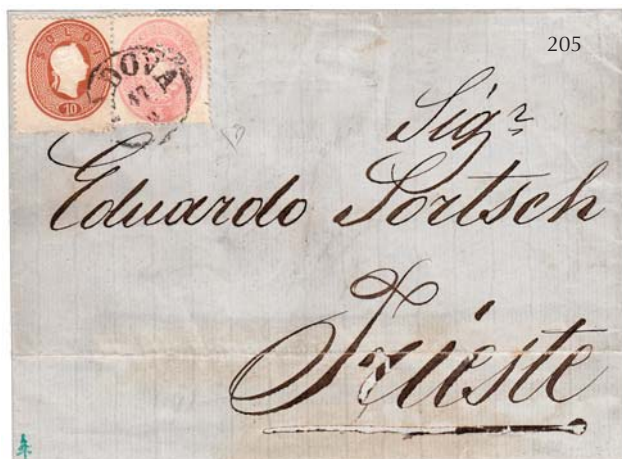 205
SOLDI
10
DOVA
17
Sigr
Eduardo Sortsch
Trieste